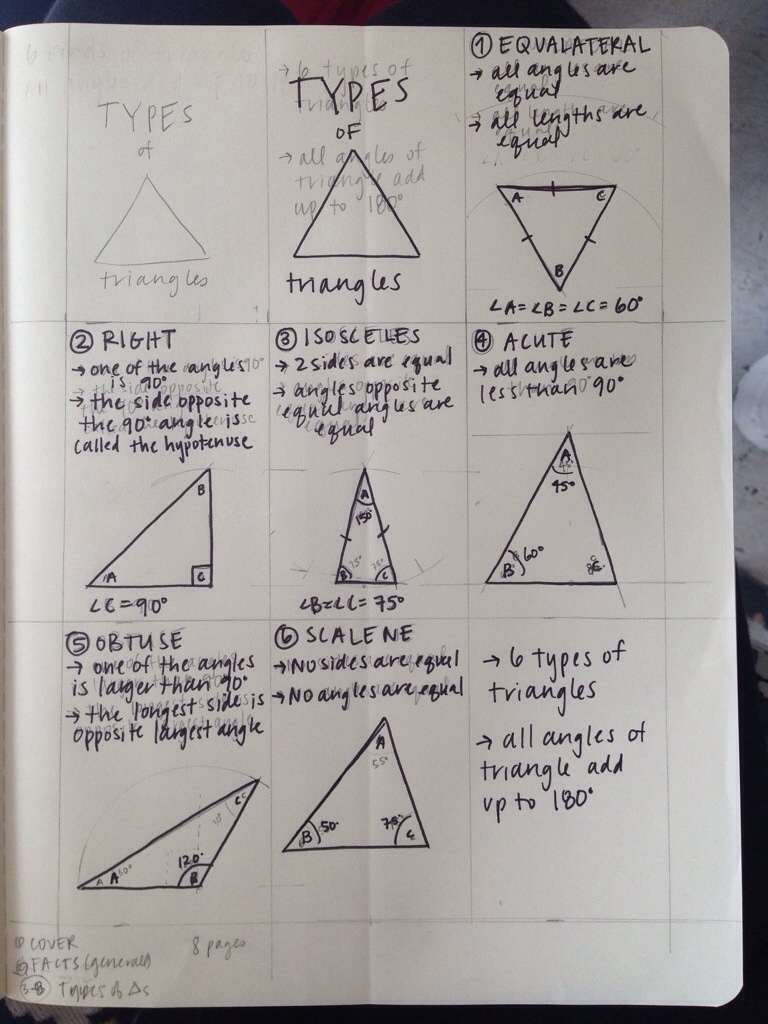 TYPES
of
triangles
→ 6 types of
triangles
→ all angles of
triangle add
up to 180°
TYPES
OF
triangles
① EQUALATERAL
→ all angles are
equal
→ all lengths are
equal
A
C
B
∠A=∠B=∠C=60°
② RIGHT
→ one of the angles
is 90°
→ the side opposite
the 90° angle is
called the hypotenuse
B
A
C
∠C=90°
③ ISOSCELES
→ 2 sides are equal
→ angles opposite
equal angles are
equal
A
150°
75°
75°
B
C
∠B=∠C=75°
④ ACUTE
→ all angles are
less than 90°
A
45°
60°
B
C
⑤ OBTUSE
→ one of the angles
is larger than 90°
→ the longest side is
opposite largest angle
C
A
30°
120°
B
⑥ SCALENE
→ NO sides are equal
→ NO angles are equal
A
55°
B
50°
75°
C
→ 6 types of
triangles
→ all angles of
triangle add
up to 180°
① COVER
② FACTS (general)
3-8 Types of Δs
8 pages